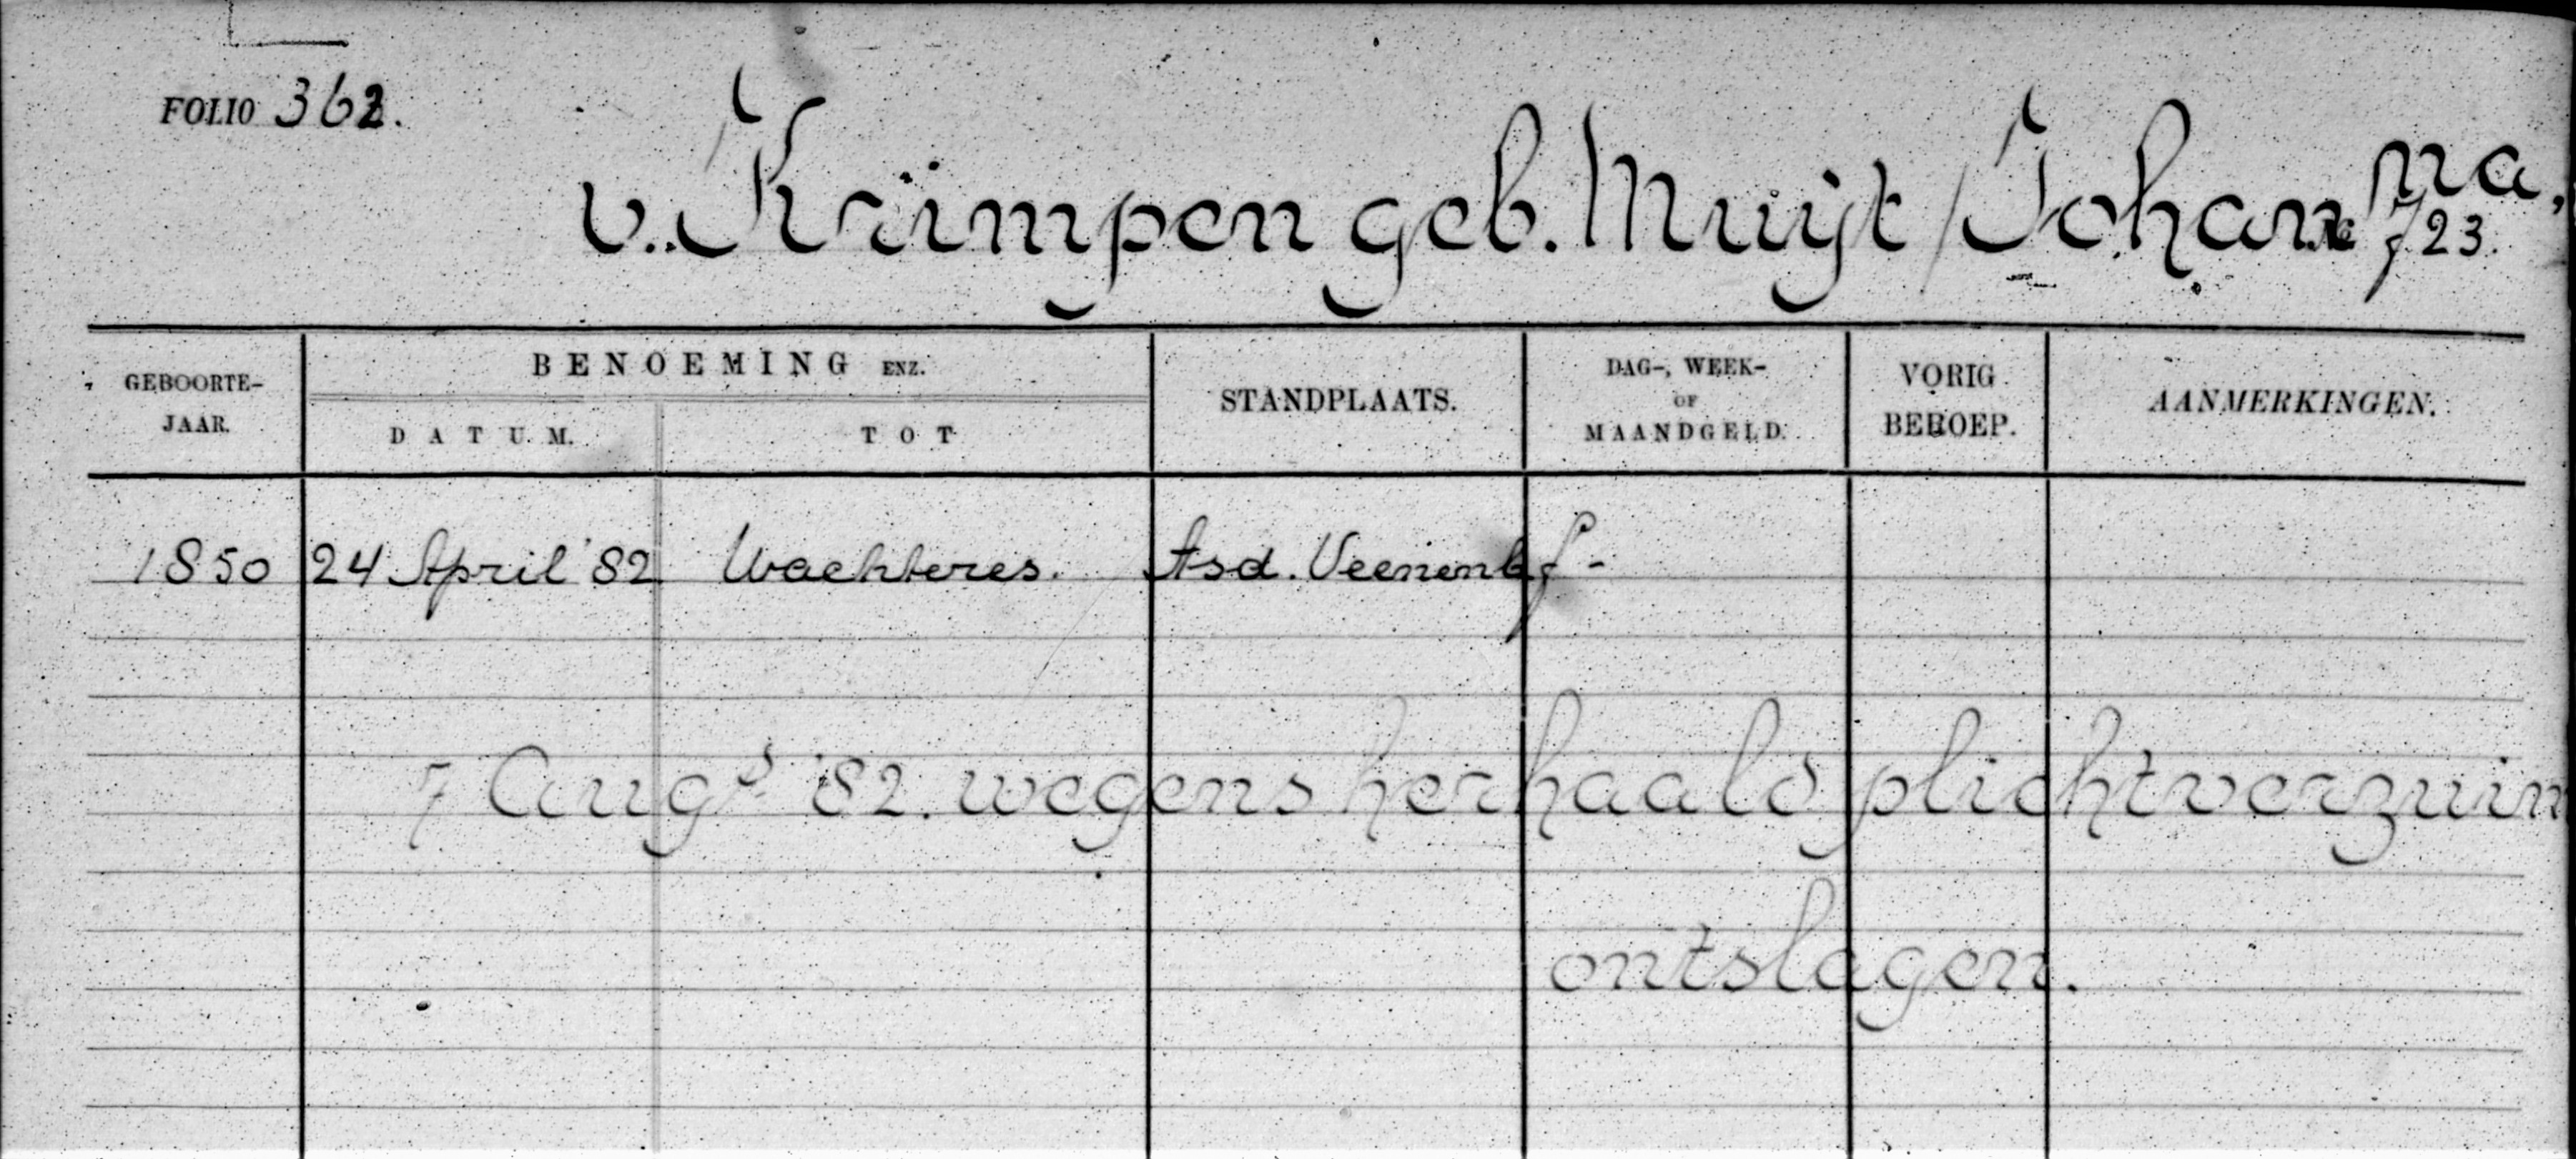 FOLIO 362.
v. Krimpen geb. Muijt Johanna,
No 723.
GEBOORTE-JAAR.
BENOEMING ENZ.
DATUM.
TOT
STANDPLAATS.
DAG-, WEEK- OF MAANDGELD.
VORIG BEROEP.
AANMERKINGEN.
1850 24 April '82 Wachteres. Asd. Veenenb. f -
7 Augs '82. wegens herhaald plichtverzuim
ontslagen.